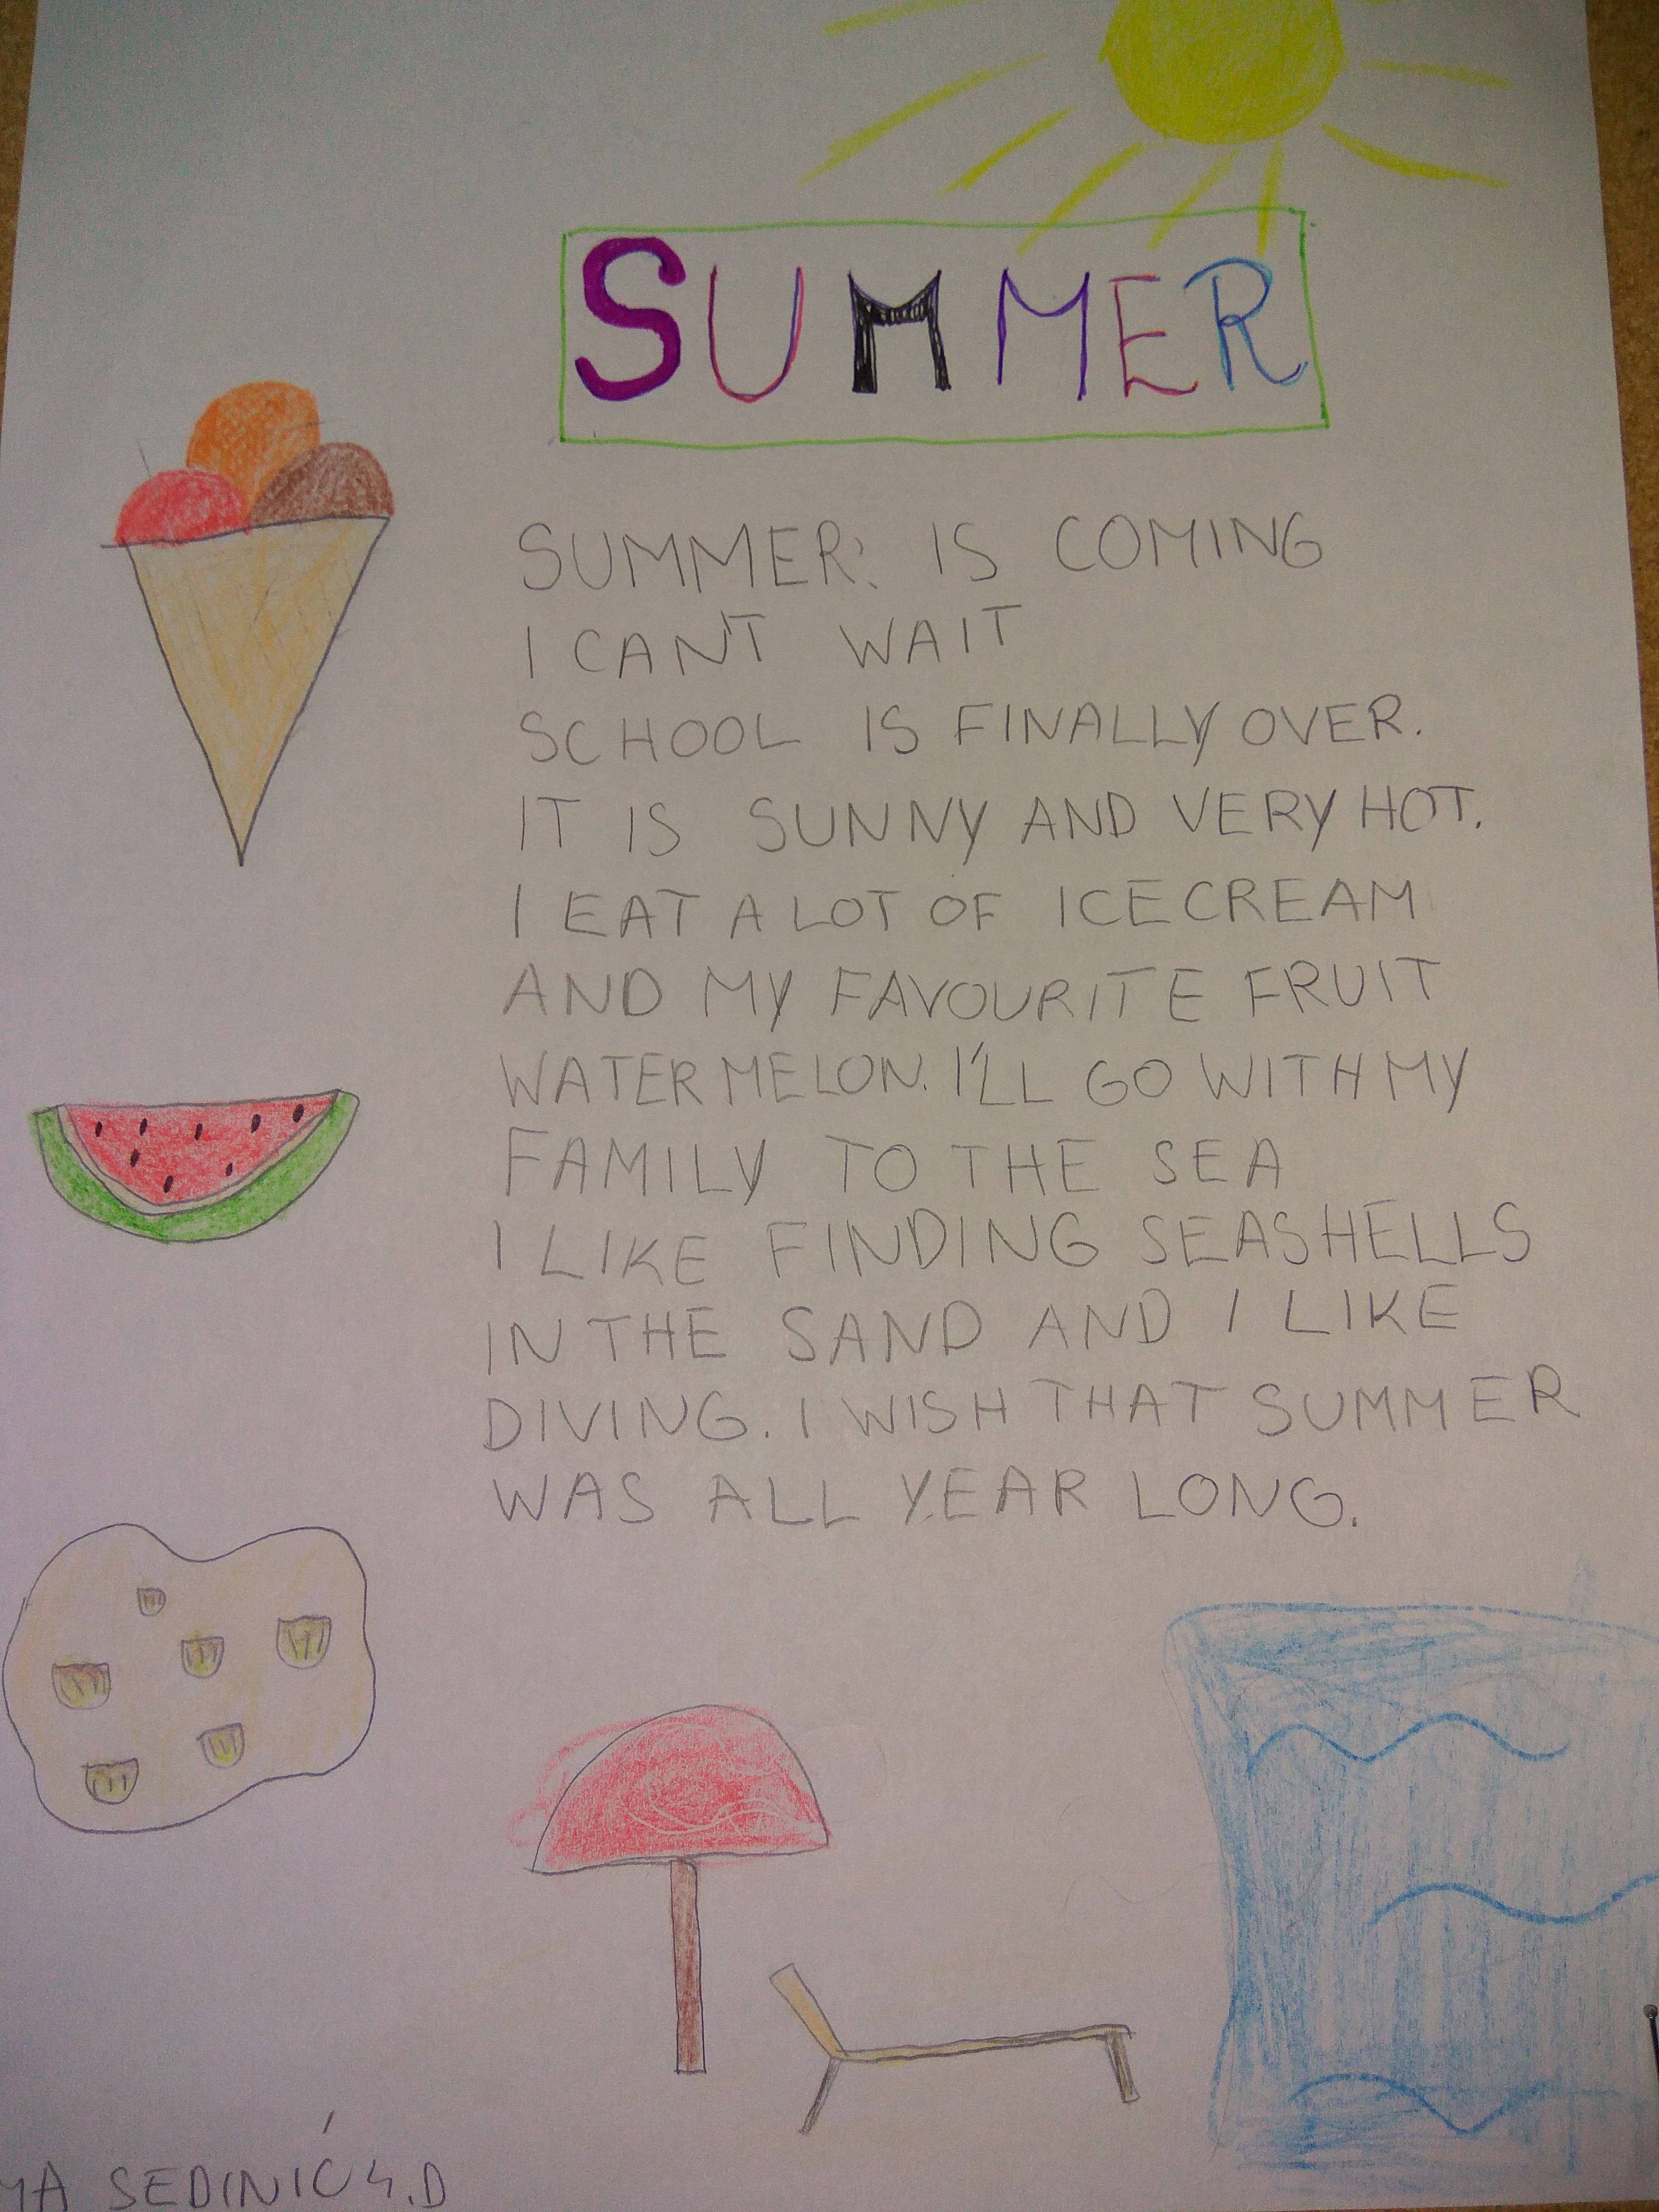 SUMMER
SUMMER: IS COMING
I CAN'T WAIT
SCHOOL IS FINALLY OVER.
IT IS SUNNY AND VERY HOT.
I EAT A LOT OF ICECREAM
AND MY FAVOURITE FRUIT
WATERMELON. I'LL GO WITH MY
FAMILY TO THE SEA
I LIKE FINDING SEASHELLS
IN THE SAND AND I LIKE
DIVING. I WISH THAT SUMMER
WAS ALL YEAR LONG.
SEDINIĆ 4.D